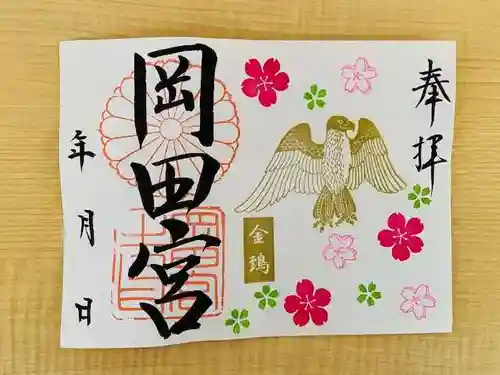 奉拝
金鵄
岡田宮
年月日